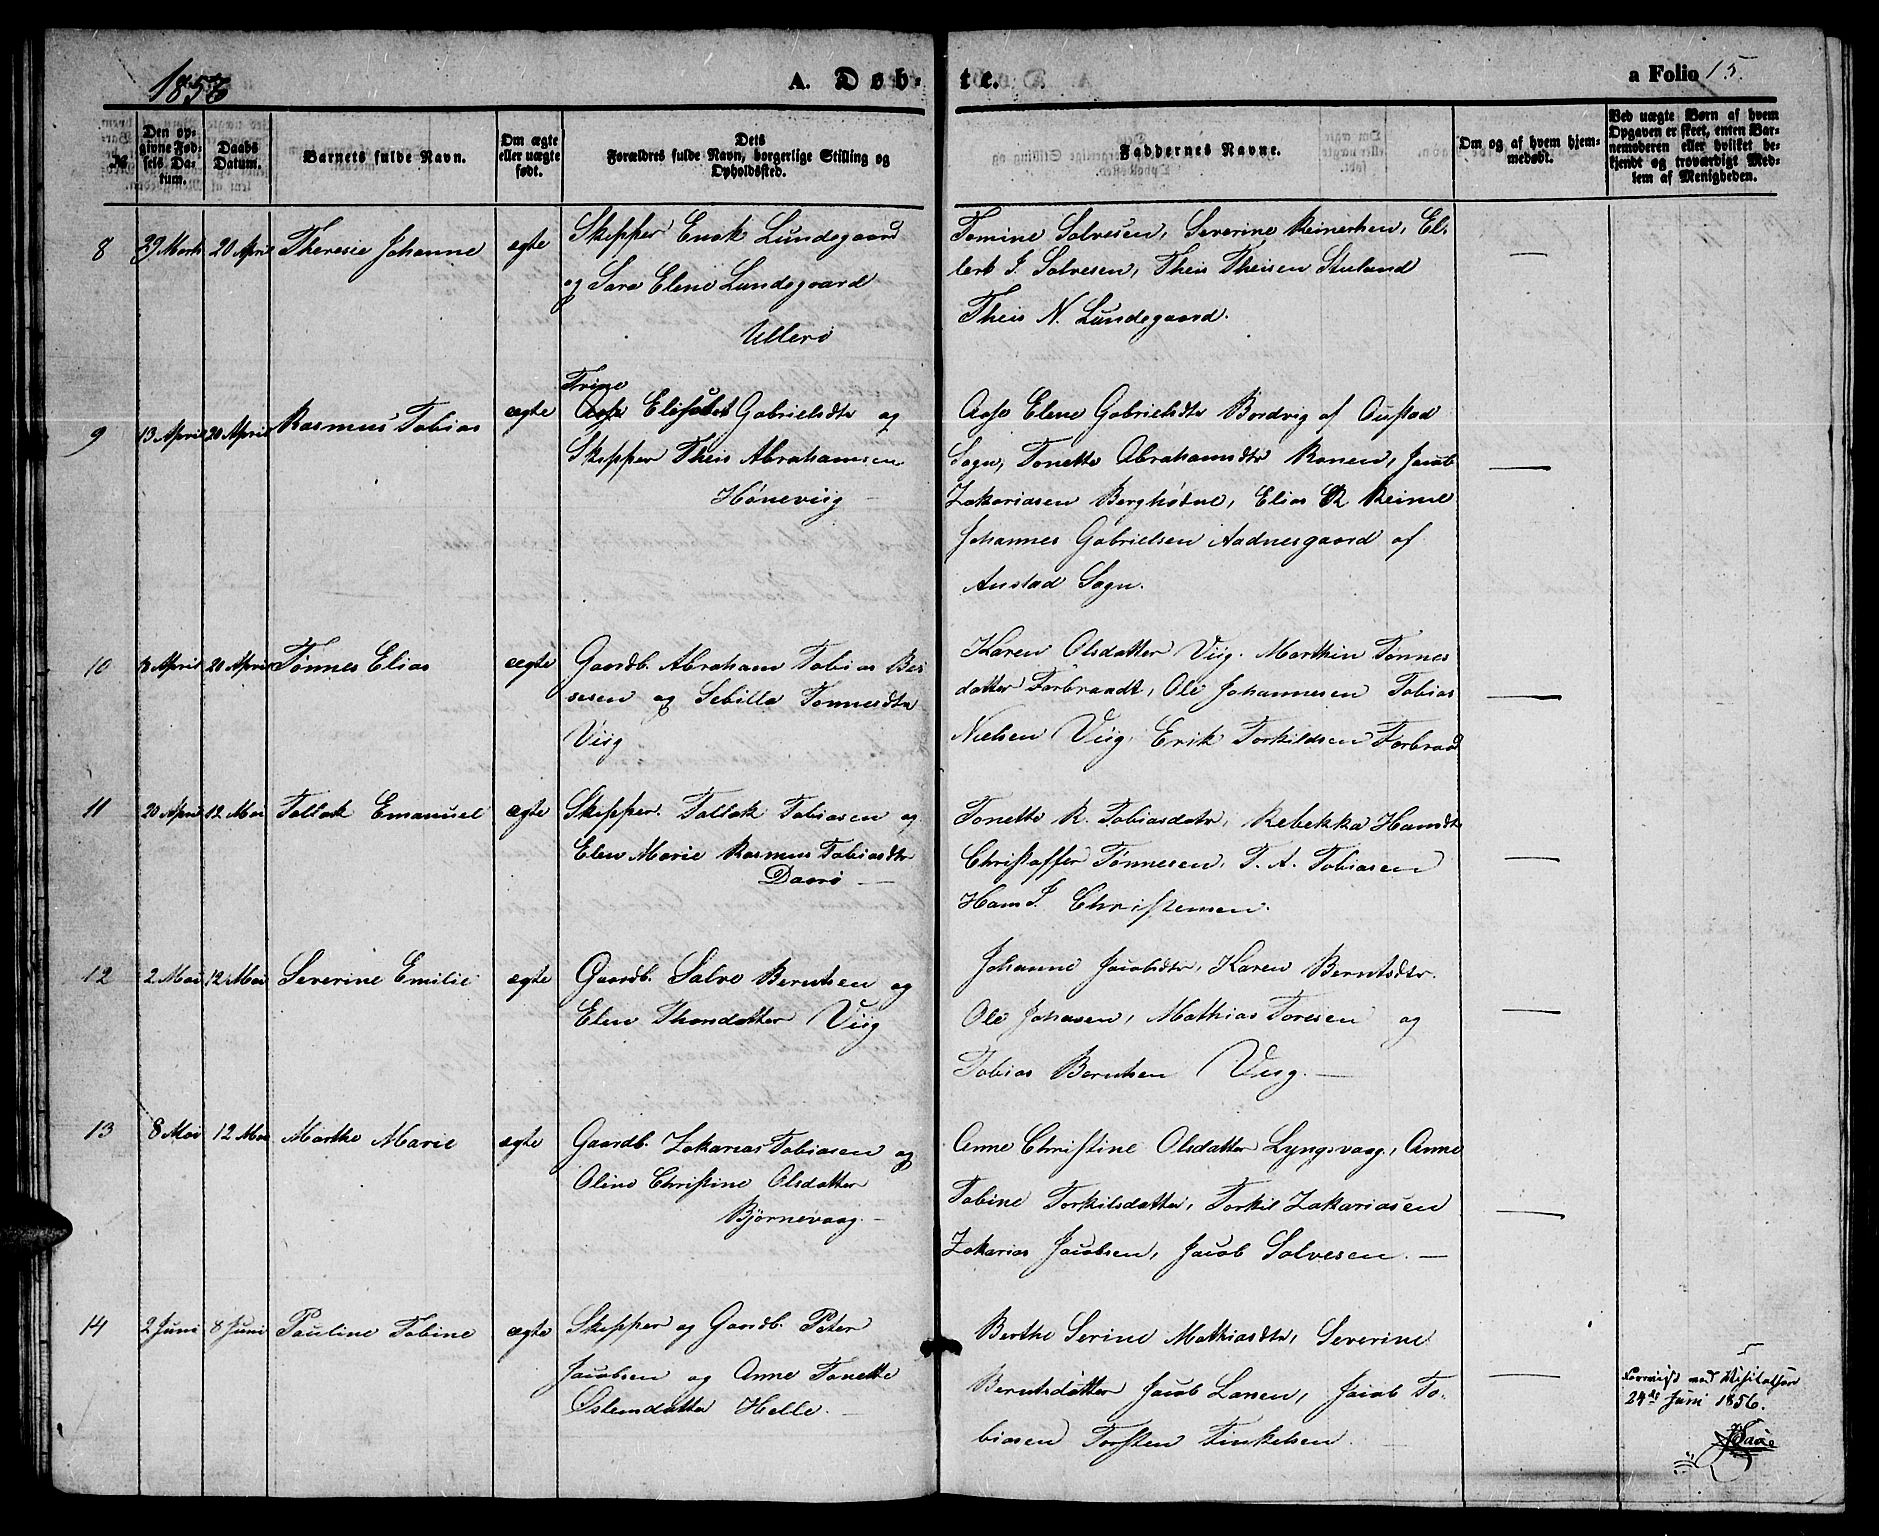 1856
A. Døb-
te.
a Folio 15.
№
Den op-
givne Fød-
sels Da-
tum.
Daabs
Datum.
Barnets fulde Navn.
Om ægte
eller uægte
født.
Dets
Forældres fulde Navn, borgerlige Stilling og
Opholdssted.
Faddernes Navne.
Om og af hvem hjem-
medøbt.
Ved uægte Børn af hvem
Opgaven er skeet, enten Bar-
nemoderen eller hvilket be-
kjendt og troværdigt Med-
lem af Menigheden.
8 29 Marts 20 April Theresie Johanne ægte
Skipper Enok Lundegaard
og Sara Elene Lundegaard
Ullerø
Tomine Salvesen, Severine Reinertsen, El-
lert J. Salvesen, Theis Theisen Stuland
Theis N. Lundegaard.
9 13 April 20 April Rasmus Tobias ægte
Trine
Aase Elisabet Gabrielsdtr og
Skipper Theis Abrahamsen
Hønevig
Aase Elene Gabrielsdtr Bordvig af Oustad
Sogn, Tonette Abrahamsdtr Ronen, Jacob
Zakariasen Berghødne, Elias R Reime
Johannes Gabrielsen Aadnesgaard af
Austad Sogn.
10 13 April 20 April Tønnes Elias ægte
Gaardb. Abraham Tobias Ber
sesen og Sebille Tønnesdtr
Viig
Karen Olsdatter Viig. Marthin Tønnes
datter Forbrandt, Ole Johannesen Tobias
Nielsen Viig. Erik Torkildsen Forbrand
11 20 April 12 Mai Tallak Emanuel ægte
Skipper Tallak Tobiasen og
Elen Marie Rasmus Tobiasdtr
Daarø
Tonette R. Tobiasdatr, Rebekka Hansdtr
Christoffer Tønnesen, T. A. Tobiasen
Hans J. Christensen.
12 2 Mai 12 Mai Severine Emilie ægte
Gaardb. Salve Berntsen og
Elen Thorsdatter Viig
Johanne Jacobsdtr, Karen Berntsdtr.
Ole Johnsen, Mathias Toresen og
Tobias Berntsen Viig.
13 8 Mai 12 Mai Marthe Marie ægte
Gaardb. Zakarias Tobiasen og
Oline Christine Olsdatter
Bjørnevaag.
Anne Christine Olsdatter Lyngsvaag, Anne
Tobine Torkilsdatter, Torkil Zakariasen
Zakarias Jacobsen, Jacob Salvesen.
14 2 Juni 8 Juni Pauline Tobine ægte
Skipper og Gaardb. Peter
Jacobsen og Anne Tonette
Osteinsdatter Helle.
Berthe Serine Mathiasdtr, Severine
Berntsdatter Jacob Lanen, Jacob To-
biasen Torsten Tinkelsen.
Foreviist ved Visitatsen
24de Juni 1856.